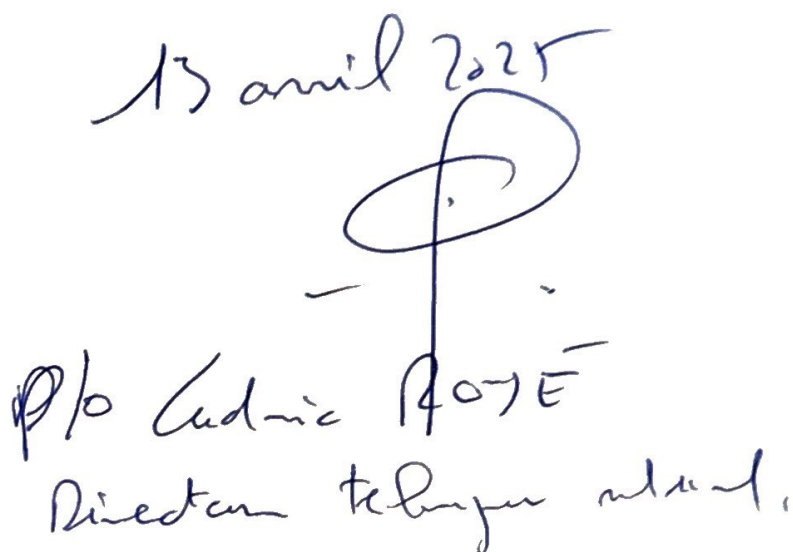 13 avril 2025
p/o Ludovic ROYÉ
Directeur technique national.